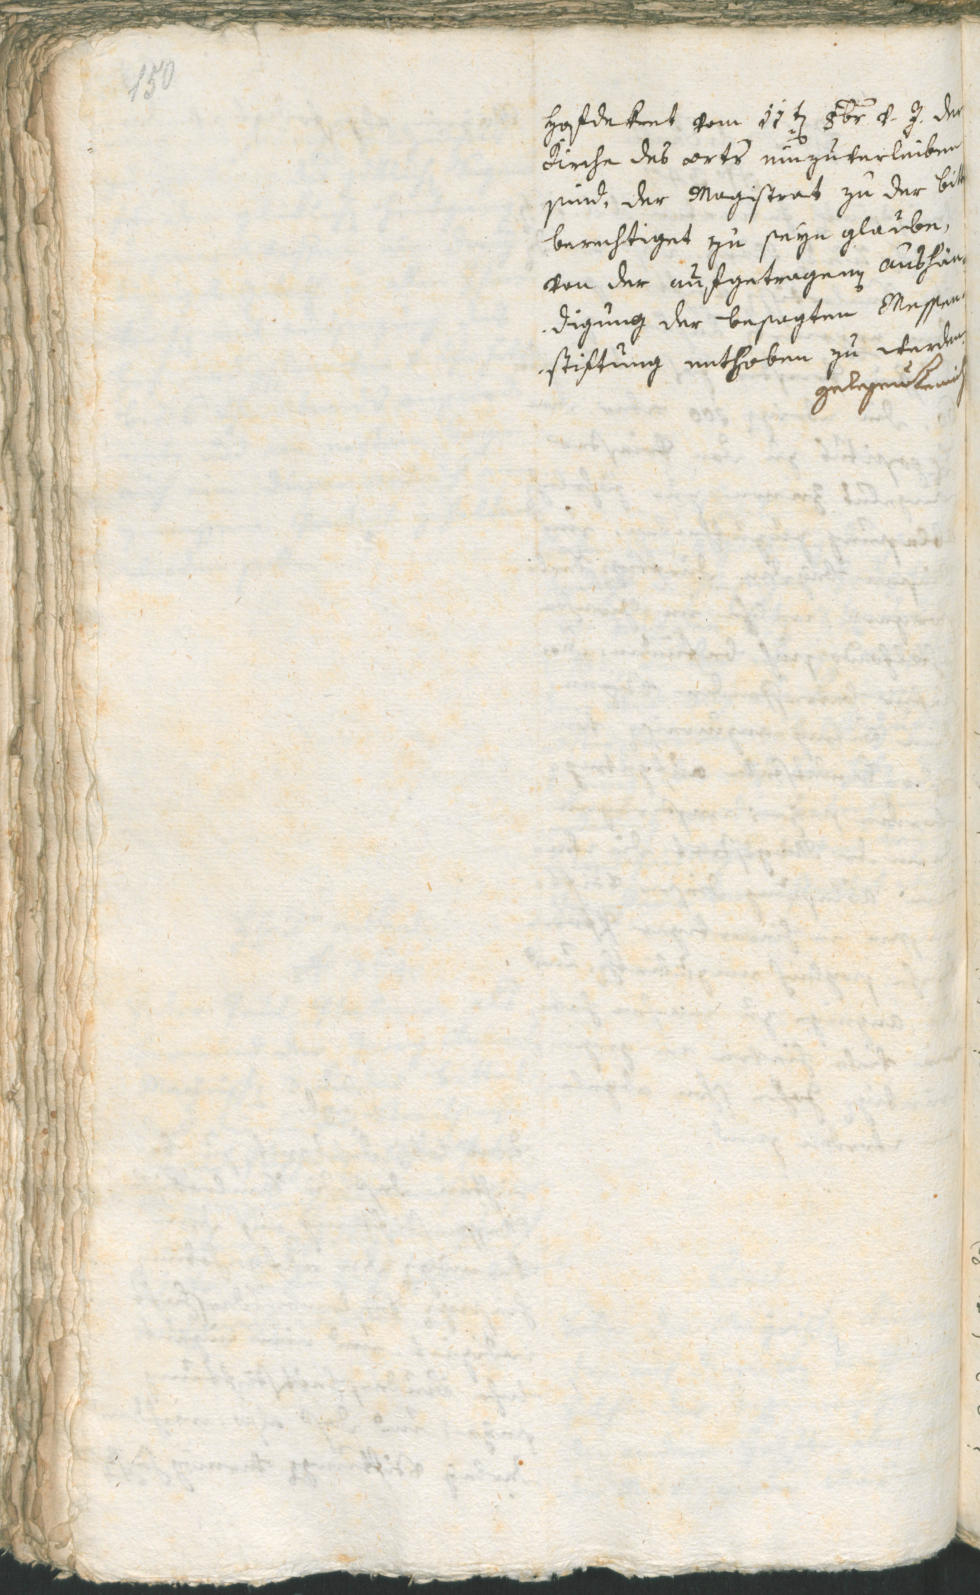 150
Hofdekret vom 11t. 8br v. J. der
Kirche des orts einzuverleiben
sind, der Magistrat zu der bitt
berechtiget zu seyn glaube,
von der aufgetragenen aushän-
digung der besagten Messen-
stiftung enthoben zu werden.